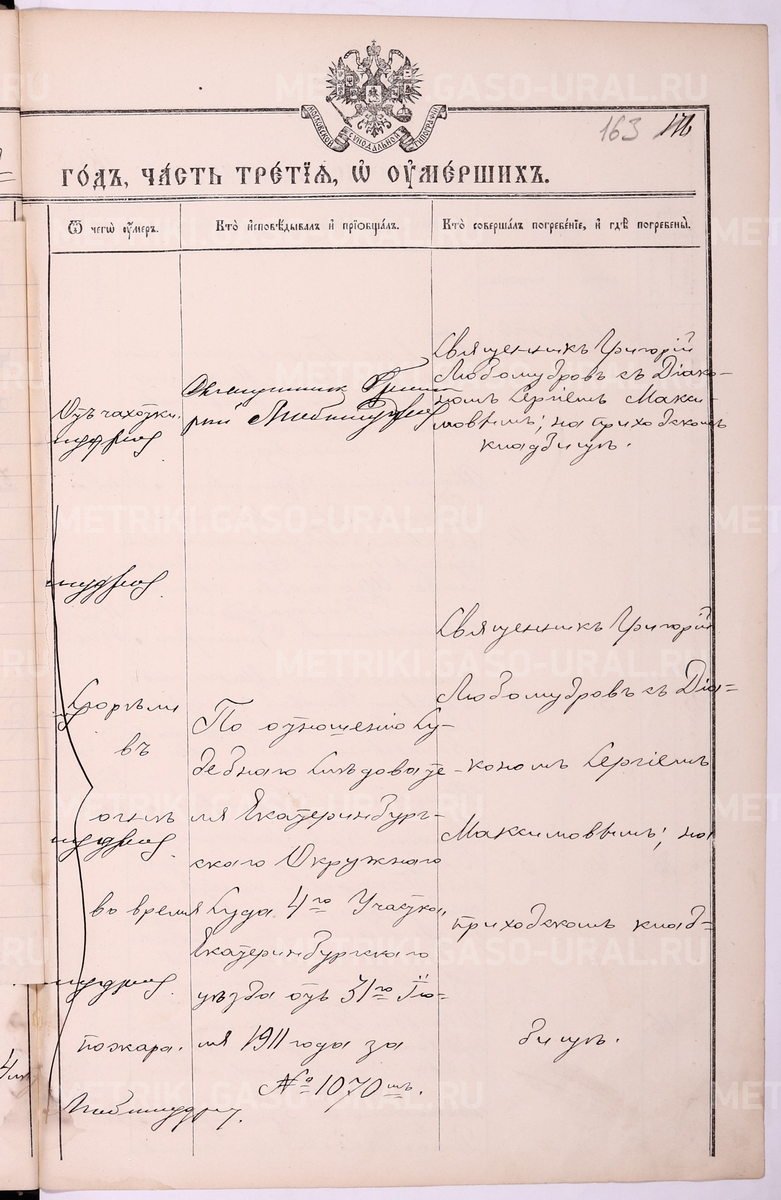 МОСКОВСКОЙ СѴНОДАЛЬНОЙ ТИПОГРАФІИ
163
го́дъ, ча́сть тре́тїѧ, ѡ҆ ᲂу҆ме́ршихъ.
Ѿ чегѡ̀ ᲂу҆́меръ.
Кто̀ и҆сповѣ́дывалъ и҆ прїѻбща́лъ.
Кто̀ соверша́лъ погребе́нїе, и҆ гдѣ̀ погребены̀.
Отъ чахотки.
Священникъ Григорій Любомудровъ
Священникъ Григорій
Любомудровъ съ Діако-
номъ Сергіемъ Макси-
мовымъ; на приходскомъ
кладбищѣ.
Сгорѣли
въ
огнѣ
во время
пожара.
По отношенію Су-
дебнаго Слѣдовате-
ля Екатеринбург-
скаго Окружнаго
Суда 4го Участка,
Екатеринбургскаго
уѣзда отъ 31го Iю-
ля 1911 года за
№ 1070мъ.
Священникъ Григорій
Любомудровъ съ Діа=
кономъ Сергіемъ
Максимовымъ; на
приходскомъ клад=
бищѣ.
METRIKI.GASO-URAL.RU